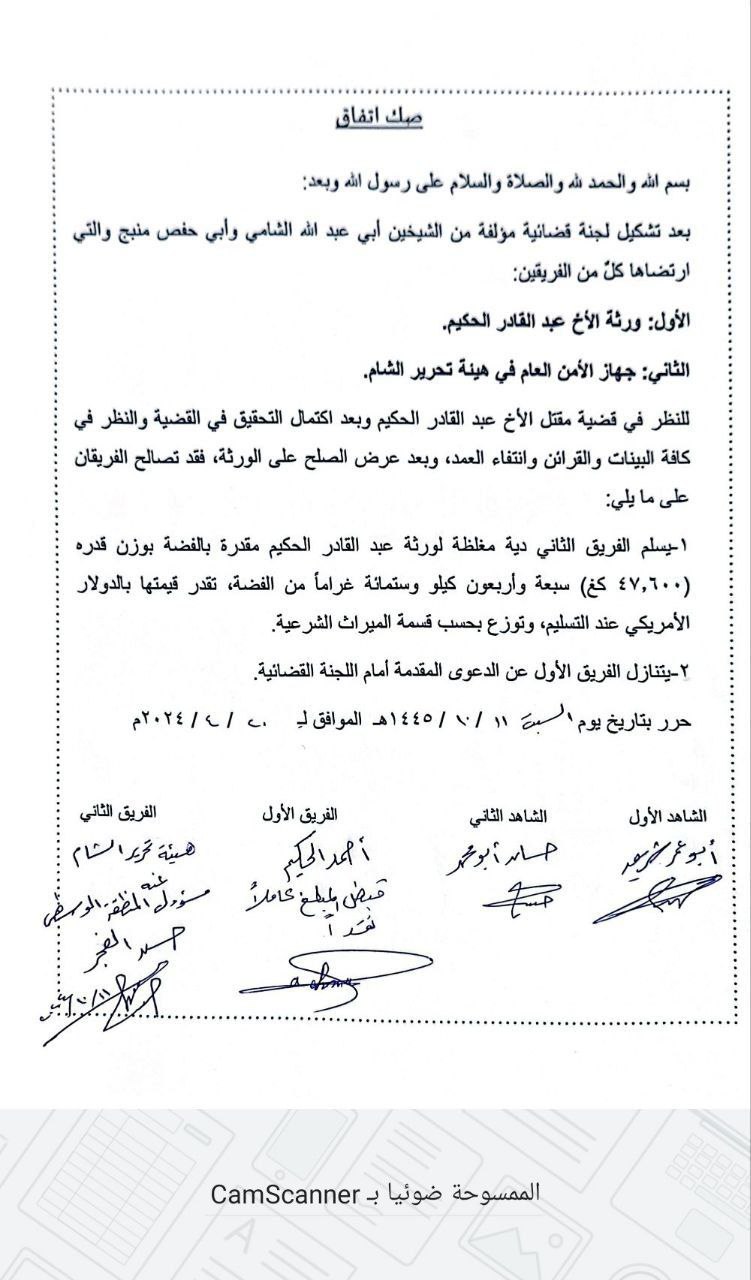 صك اتفاق
بسم الله والحمد لله والصلاة والسلام على رسول الله وبعد:
بعد تشكيل لجنة قضائية مؤلفة من الشيخين أبي عبد الله الشامي وأبي حفص منبج والتي
ارتضاها كلٌ من الفريقين:
الأول: ورثة الأخ عبد القادر الحكيم.
الثاني: جهاز الأمن العام في هيئة تحرير الشام.
للنظر في قضية مقتل الأخ عبد القادر الحكيم وبعد اكتمال التحقيق في القضية والنظر في
كافة البينات والقرائن وانتفاء العمد، وبعد عرض الصلح على الورثة، فقد تصالح الفريقان
على ما يلي:
١-يسلم الفريق الثاني دية مغلظة لورثة عبد القادر الحكيم مقدرة بالفضة بوزن قدره
(٤٧,٦٠٠ كغ) سبعة وأربعون كيلو وستمائة غراماً من الفضة، تقدر قيمتها بالدولار
الأمريكي عند التسليم، وتوزع بحسب قسمة الميراث الشرعية.
٢-يتنازل الفريق الأول عن الدعوى المقدمة أمام اللجنة القضائية.
حرر بتاريخ يوم السبت ١١ / ١٠ / ١٤٤٥هـ الموافق لـ ٢٠ / ٤ / ٢٠٢٤م
الشاهد الأول الشاهد الثاني الفريق الأول الفريق الثاني
أبو عمر حسام أبو محمد أحمد الحكيم هيئة تحرير الشام
قبض المبلغ كاملاً عنه
نقداً مسؤول المنطقة الوسطى
الممسوحة ضوئيا بـ CamScanner